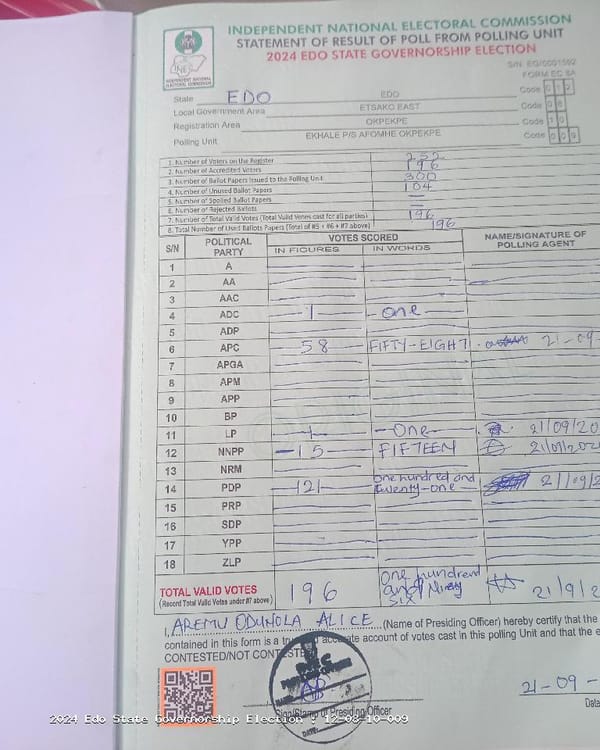 INDEPENDENT NATIONAL ELECTORAL COMMISSION
STATEMENT OF RESULT OF POLL FROM POLLING UNIT
2024 EDO STATE GOVERNORSHIP ELECTION
INEC
INDEPENDENT NATIONAL ELECTORAL COMMISSION
FORM EC 8A
State EDO EDO Code 1 2
Local Government Area ETSAKO EAST Code 0 8
Registration Area OKPEKPE Code 1 0
Polling Unit EKHALE P/S AFOMHE OKPEKPE Code 0 0 9
1. Number of Voters on the Register 252
2. Number of Accredited Voters 196
3. Number of Ballot Papers Issued to the Polling Unit 300
4. Number of Unused Ballot Papers 104
5. Number of Spoiled Ballot Papers —
6. Number of Rejected Ballots —
7. Number of Total Valid Votes (Total Valid Votes cast for all parties) 196
8. Total Number of Used Ballots Papers (Total of #5 + #6 + #7 above) 196
S/N POLITICAL PARTY VOTES SCORED NAME/SIGNATURE OF POLLING AGENT
IN FIGURES IN WORDS
1 A
2 AA
3 AAC
4 ADC 1 One
5 ADP
6 APC 58 FIFTY-EIGHT 21-09-
7 APGA
8 APM
9 APP
10 BP
11 LP 1 One 21/09/20
12 NNPP 15 FIFTEEN 21/09/202
13 NRM
14 PDP 121 One hundred and twenty-one 21/09/2
15 PRP
16 SDP
17 YPP
18 ZLP
TOTAL VALID VOTES 196 One hundred and Ninety six 21/9/2
(Record Total Valid Votes under #7 above)
I, AREMU ODUNOLA ALICE (Name of Presiding Officer) hereby certify that the
contained in this form is a account of votes cast in this polling Unit and that the e
CONTESTED/NOT CONTESTED
21-09-
Sign/Stamp of Presiding Officer
DATE
2024 Edo State Governorship Election : 12-08-10-009